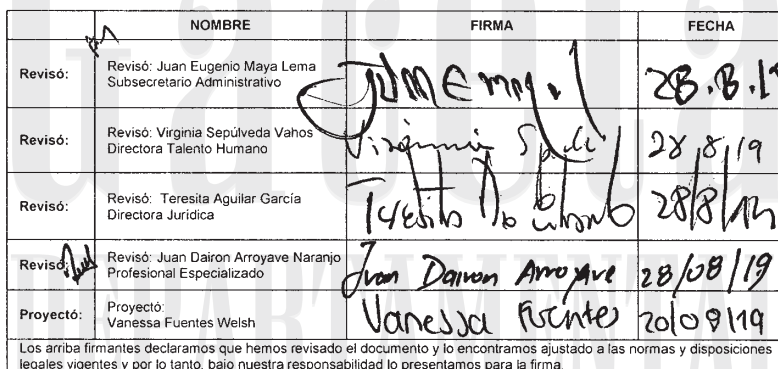 NOMBRE FIRMA FECHA
Revisó: Revisó: Juan Eugenio Maya Lema
Subsecretario Administrativo 28.8.19
Revisó: Revisó: Virginia Sepúlveda Vahos
Directora Talento Humano Virginia 28/8/19
Revisó: Revisó: Teresita Aguilar García
Directora Jurídica Teresita 28/8/19
Revisó: Revisó: Juan Dairon Arroyave Naranjo
Profesional Especializado Juan Dairon Arroyave 28/08/19
Proyectó: Proyectó:
Vanessa Fuentes Welsh Vanessa Fuentes 20/08/19
Los arriba firmantes declaramos que hemos revisado el documento y lo encontramos ajustado a las normas y disposiciones
legales vigentes y por lo tanto, bajo nuestra responsabilidad lo presentamos para la firma.